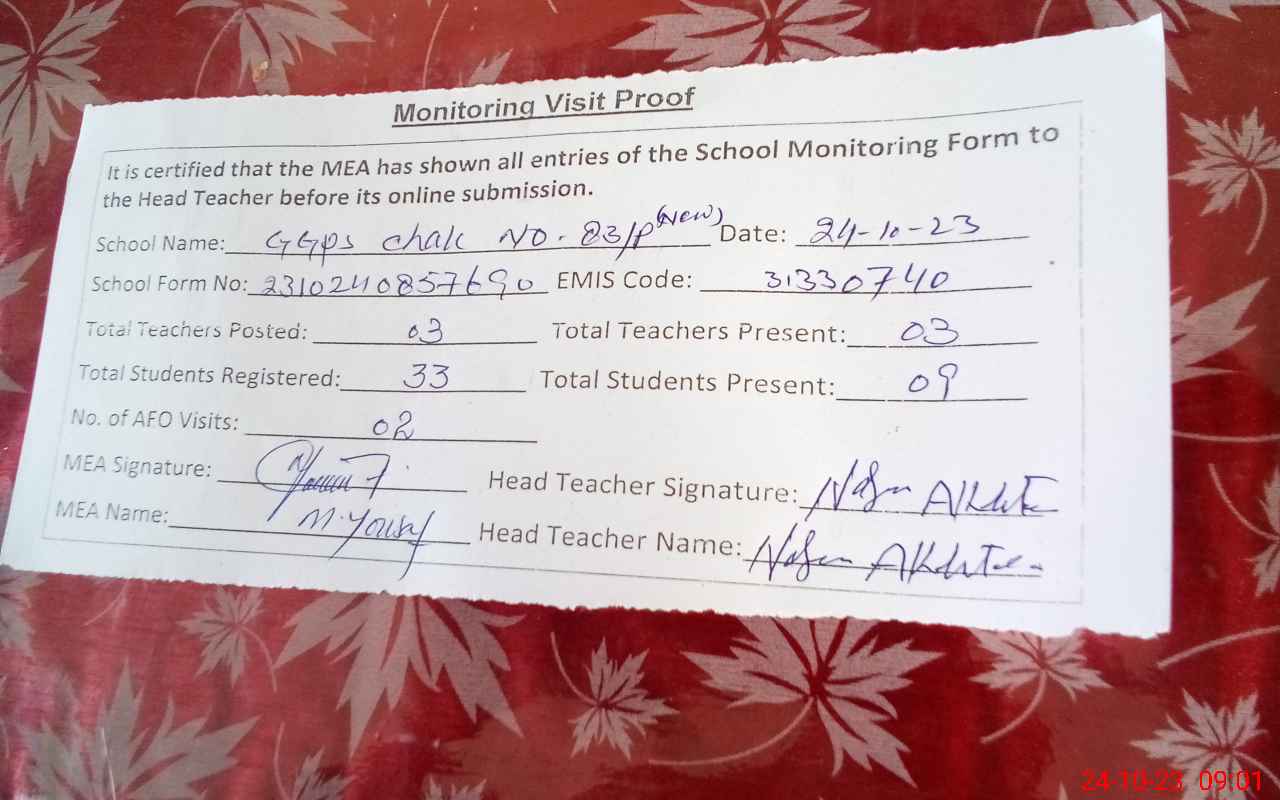 Monitoring Visit Proof
It is certified that the MEA has shown all entries of the School Monitoring Form to
the Head Teacher before its online submission.
School Name: GGps chak NO. 83/P (New) Date: 24-10-23
School Form No: 2310240857690 EMIS Code: 31330740
Total Teachers Posted: 03 Total Teachers Present: 03
Total Students Registered: 33 Total Students Present: 09
No. of AFO Visits: 02
MEA Signature: Head Teacher Signature: Akhtar
MEA Name: M. Yousaf Head Teacher Name: Akhtar
24-10-23 09:01